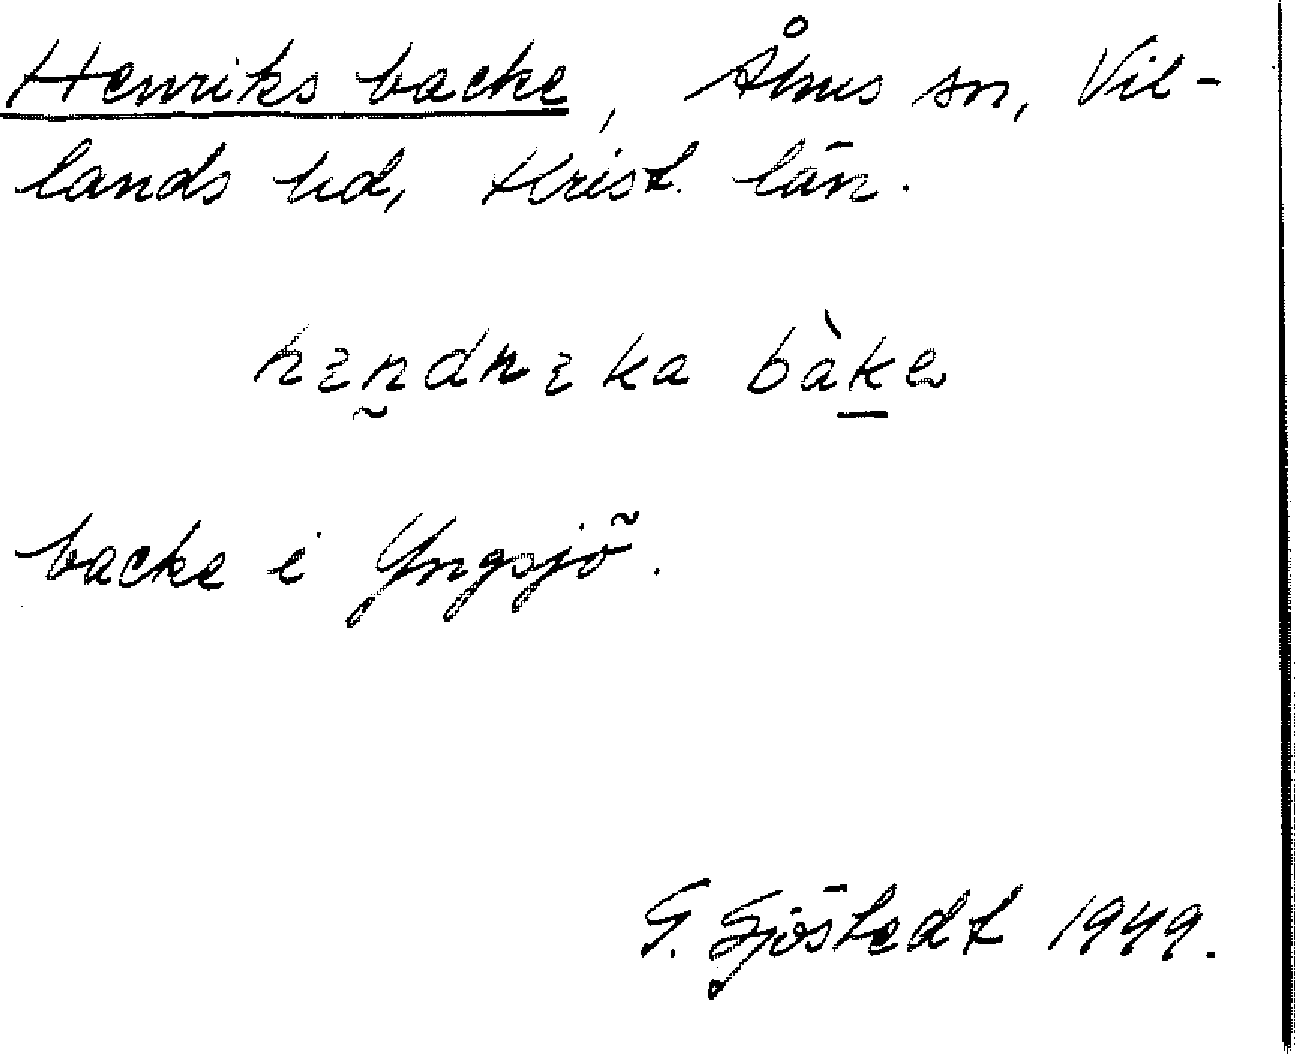 Henriks backe, Åhus sn, Vil-
lands hd, Krist. län.
bàke
backe i Yngsjö.
G. Sjöstedt 1949.